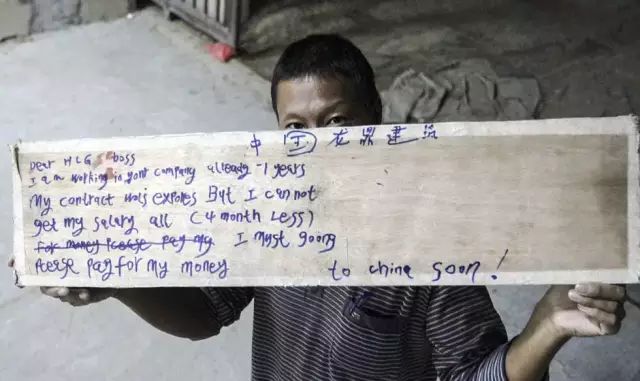 中国龙鼎建筑
Dear HLG boss
I am working in yont company already -1 years
My contract wois expores But I can not
get my salary all (4 month Less)
for money Plcese pay my I myst goong
Plcese pay for my money to china soon!